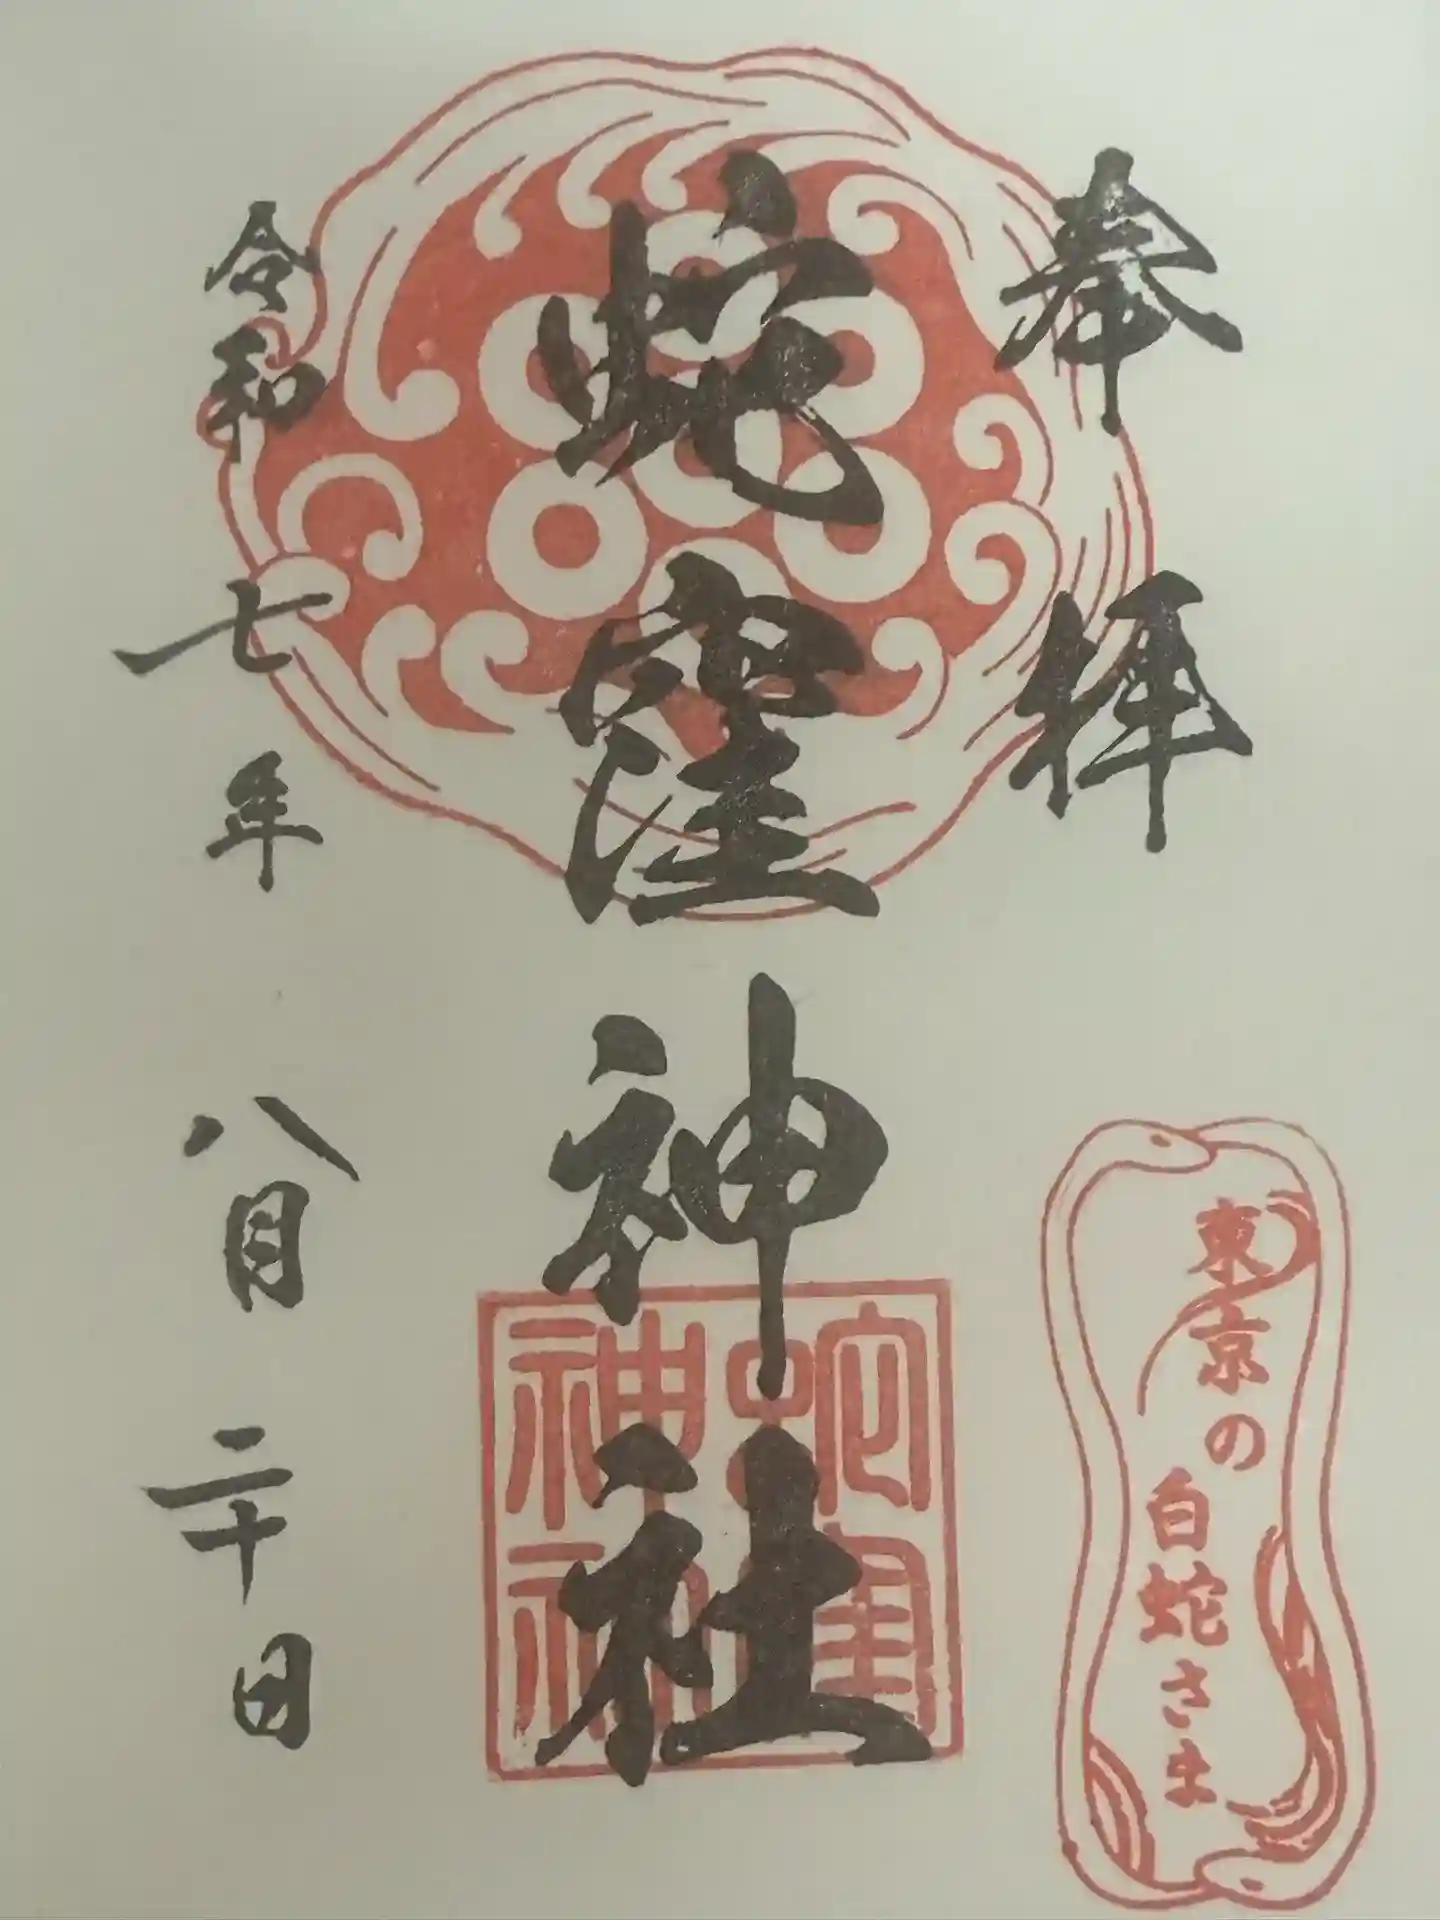 奉拝
蛇窪神社
令和七年八月二十日
東京の
白蛇さま
蛇窪
神社